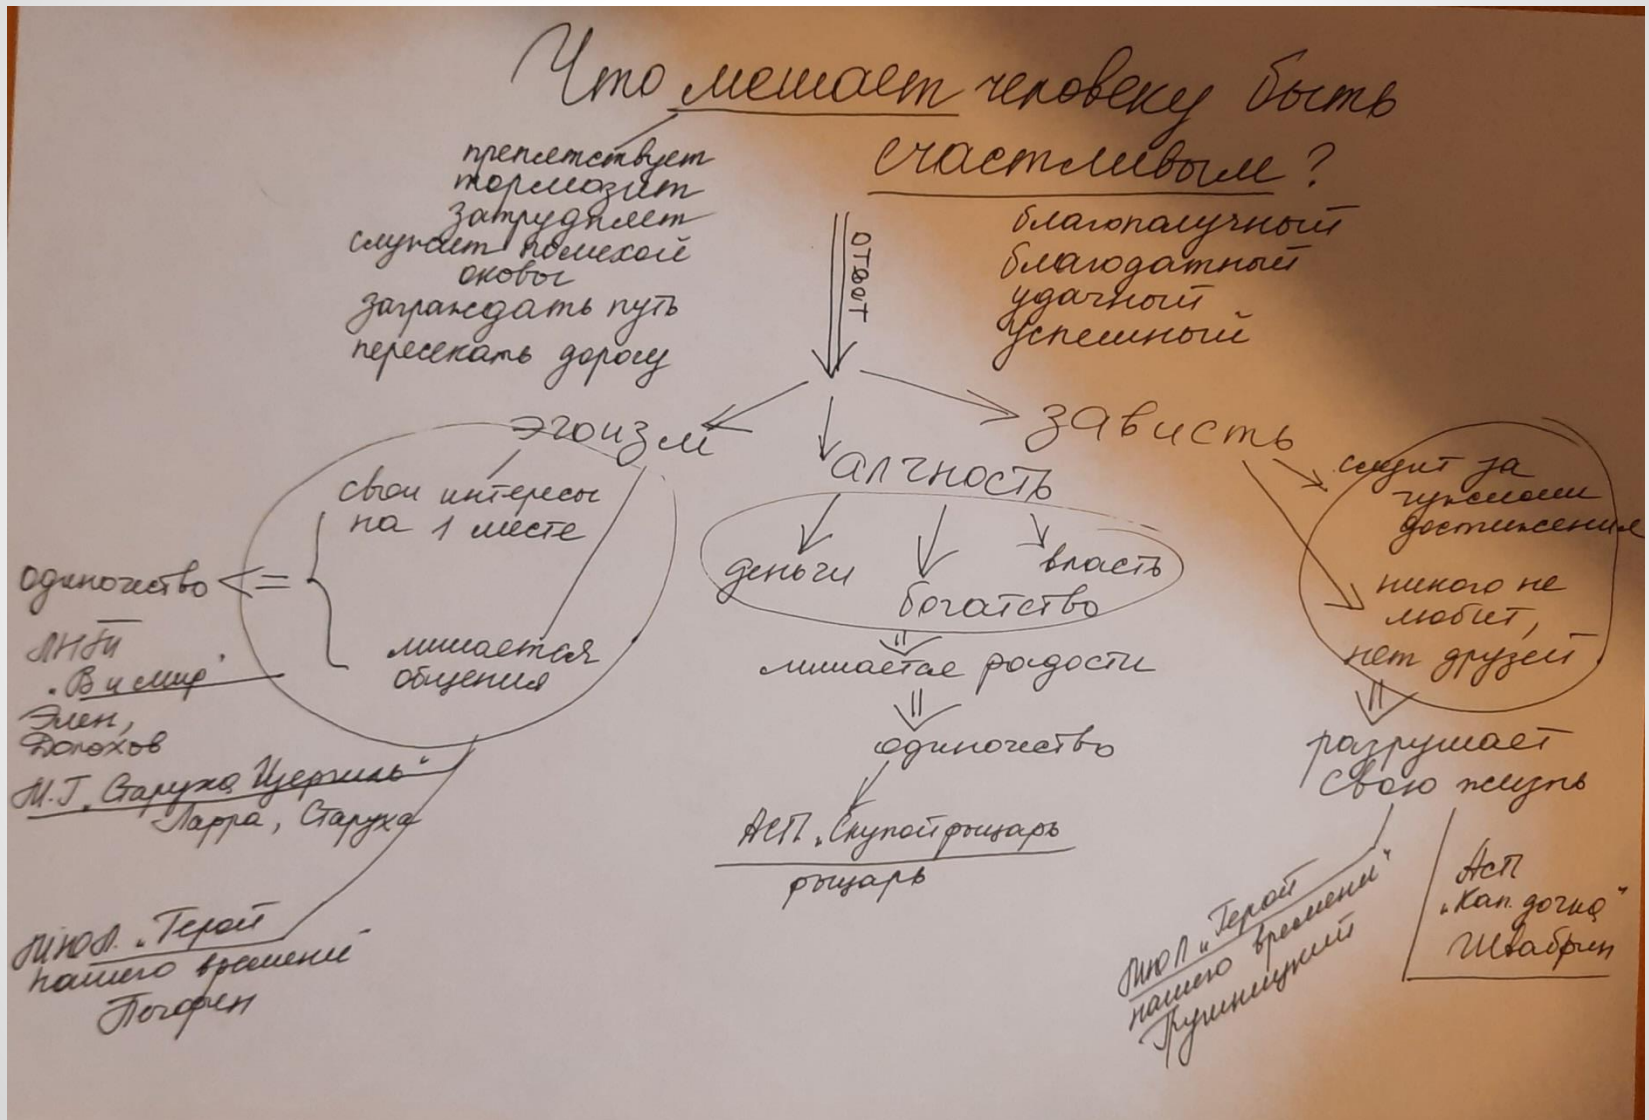 Что мешает человеку быть
счастливым?
препятствует
тормозит
затрудняет
служит помехой
оковы
заграждать путь
пересекать дорогу
ответ
благополучный
благодатный
удачный
успешный
эгоизм
алчность
зависть
свои интересы
на 1 месте
лишается
общения
одиночество
ЛНТ
"В и мир"
Элен,
Долохов
М.Г. "Старуха Изергиль"
Ларра, Старуха
МЮЛ. "Герой
нашего времени"
Печорин
деньги
богатство
власть
лишается радости
одиночество
АСП "Скупой рыцарь
рыцарь
следит за
чужими
достижения
никого не
любит,
нет друзей
разрушает
свою жизнь
МЮЛ "Герой
нашего времени"
Грушницкий
АСП
"Кап. дочка"
Швабрин